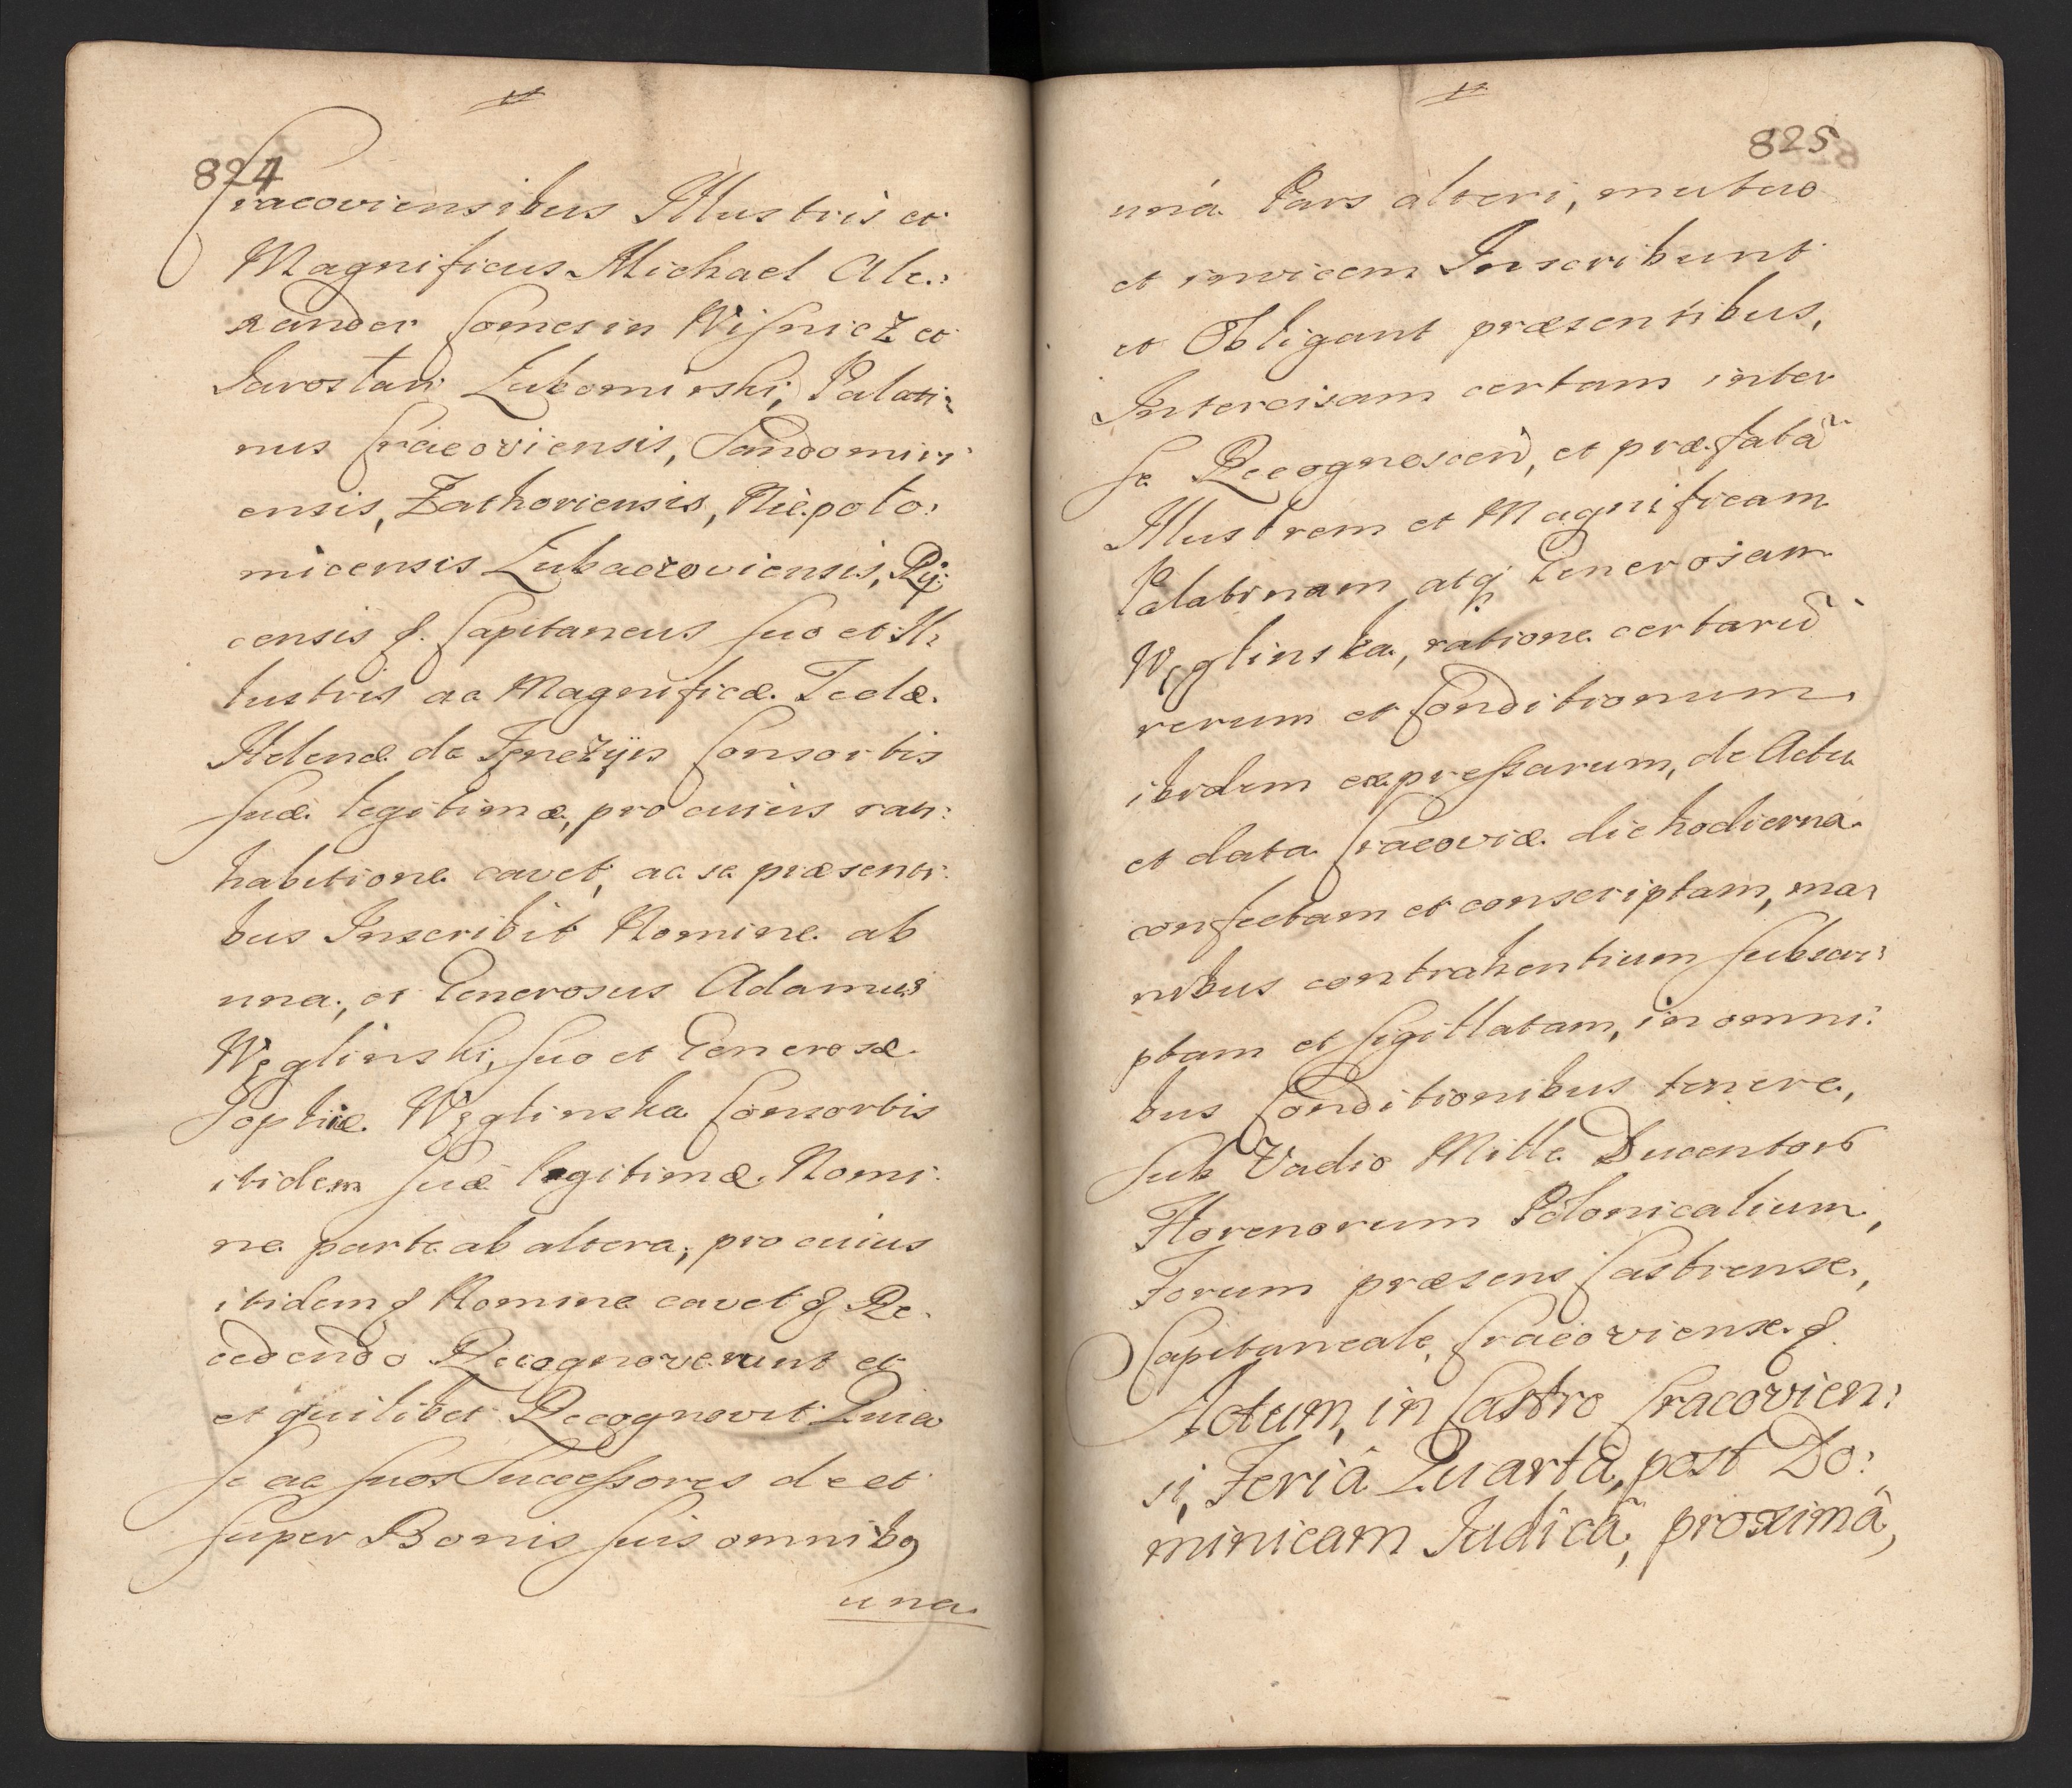 824
Cracoviensibus Illustris et
Magnificus Michael Ale:
xander Comes in Wisnicz et
Jarosław Lubomirski, Palati:
nus Cracoviensis, Sandomiri
ensis, Zathoriensis, Niepoło:
micensis Lubaczoviensis, Ry:
censis &. Capitaneus suo et Il:
lustris ac Magnificæ Teclæ
Helenæ de Tęnczyn Consortis
suæ legitimæ, pro cuius rati:
habitione cavet, ac se præsenti:
bus Inscribit Nomine ab
una, et Generosus Adamus
Węglinski, suo et Generosæ
Sophiæ Węglinska Consortis
itidem suæ legitimæ Nomi:
ne parte ab altera, pro cuius
itidem & Nomine cavet & Re.
cedendo Recognoverunt et
et quilibet Recognovit Quia
se ac suos Successores de et
super Bonis suis omnibq
una
825
una Pars alteri, mutuo
et invicem Inscribunt
et Obligant præsentibus,
Intercisam certam inter
se Recognoscen, et præfatã
Illustrem et Magnificam
Palatinam atq Generosam
Węglinska, ratione certarũ
rerum et Conditionum
ibidem expressarum, de Actu
et data Cracoviæ die hodierna
confectam et conscriptam, ma:
nibus contrahentium subscri:
ptam et sigillatam, in omni:
bus Conditionibus tenere,
sub Vadio Mille Ducentorũ
Florenorum Polonicalium,
Forum præsens Castrense,
Capitaneale, Cracoviense &.
Actum, in Castro Cracovien:
si, Feriâ Quartâ, post Do:
minicam Iudicã, proximâ,